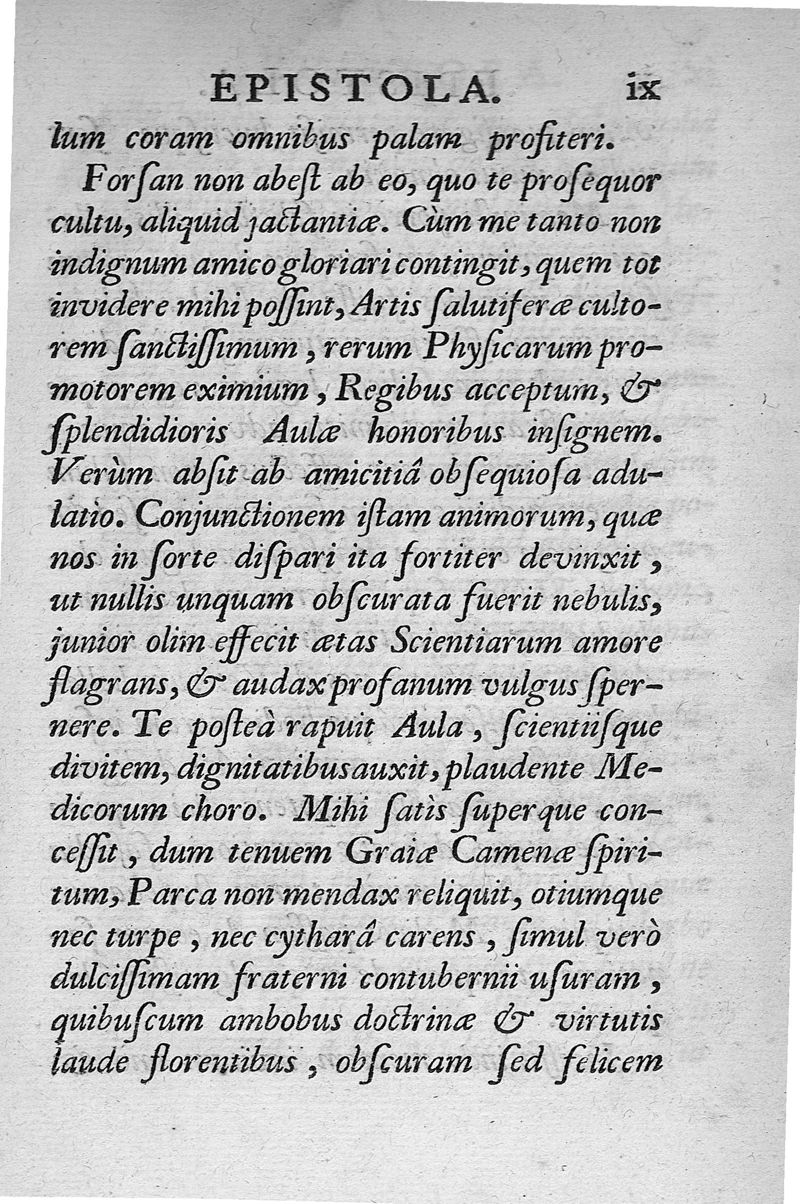 EPISTOLA. ix
lum coram omnibus palam profiteri.
Forſan non abeſt ab eo, quo te proſequor
cultu, aliquid jactantiæ. Cùm me tanto non
indignum amico gloriari contingit, quem tot
invidere mihi poſſint, Artis ſalutiferæ culto-
rem ſanctiſſimum, rerum Phyſicarum pro-
motorem eximium, Regibus acceptum, &
ſplendidioris Aulæ honoribus inſignem.
Verùm abſit ab amicitiâ obſequioſa adu-
latio. Conjunctionem iſtam animorum, quæ
nos in ſorte diſpari ita fortiter devinxit,
ut nullis unquam obſcurata fuerit nebulis,
junior olim effecit ætas Scientiarum amore
flagrans, & audax profanum vulgus ſper-
nere. Te poſteà rapuit Aula, ſcientiiſque
divitem, dignitatibus auxit, plaudente Me-
dicorum choro. Mihi ſatìs ſuperque con-
ceſſit, dum tenuem Graiæ Camenæ ſpiri-
tum, Parca non mendax reliquit, otiumque
nec turpe, nec cytharâ carens, ſimul verò
dulciſſimam fraterni contubernii uſuram,
quibuſcum ambobus doctrinæ & virtutis
laude florentibus, obſcuram ſed felicem